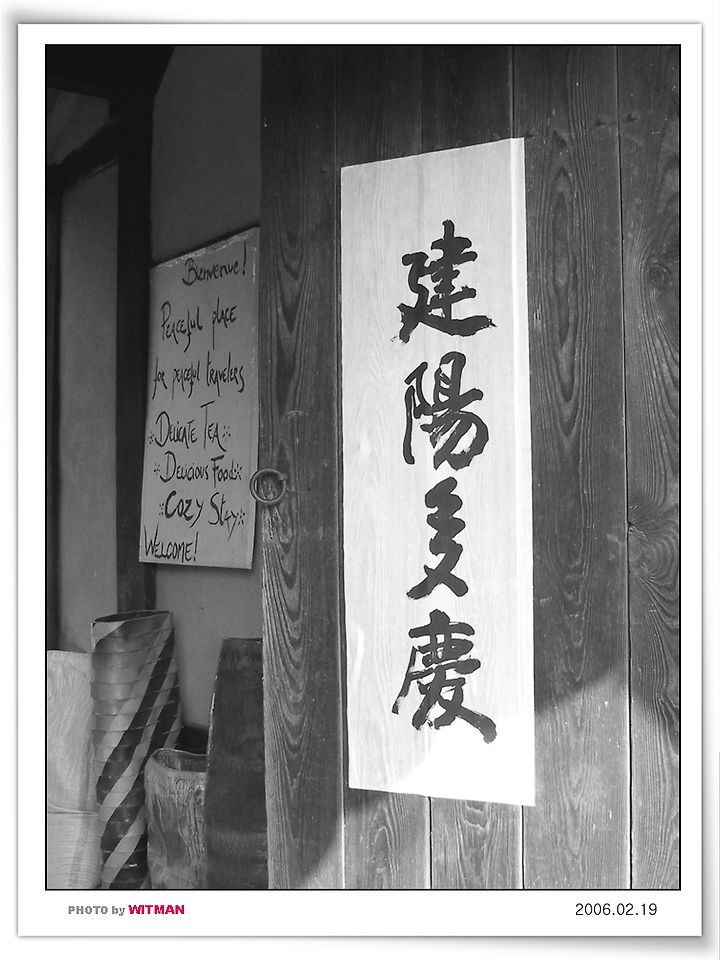 Bienvenue!
Peaceful place
for peaceful travelers
Delicate Tea
Delicious Food
Cozy Stay
Welcome!
建陽多慶
PHOTO by WITMAN
2006.02.19